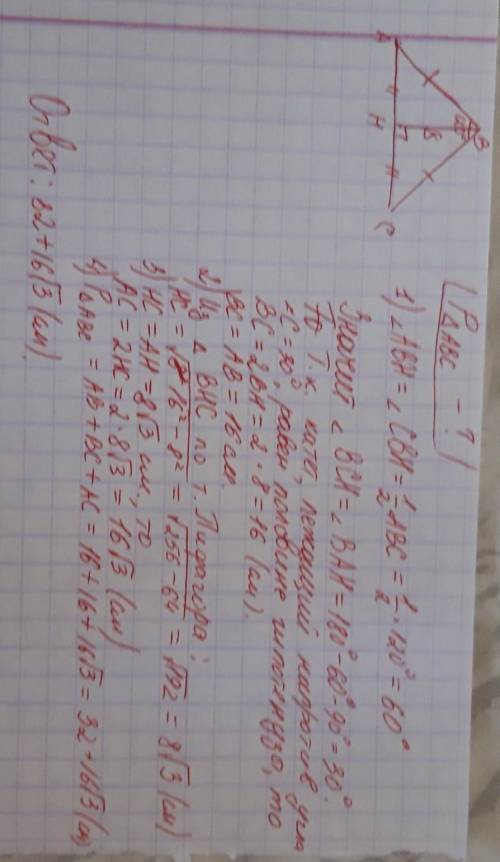 B
120°
8
A
H
C
P△ABC - ?
1) ∠ABH = ∠CBH = 1/2 ABC = 1/2 · 120° = 60°
Значит ∠BCH = ∠BAH = 180° - 60° - 90° = 30°.
Т.к. катет, лежащий напротив угла
∠C = 30°, равен половине гипотенузе, то
BC = 2BH = 2 · 8 = 16 (см).
BC = AB = 16 см.
2) Из △ BHC по т. Пифагора:
HC = √16² - 8² = √256 - 64 = √192 = 8√3 (см)
3) HC = AH = 8√3 см, то
AC = 2HC = 2 · 8√3 = 16√3 (см)
4) P△ABC = AB + BC + AC = 16 + 16 + 16√3 = 32 + 16√3 (см)
Ответ: 32 + 16√3 (см)